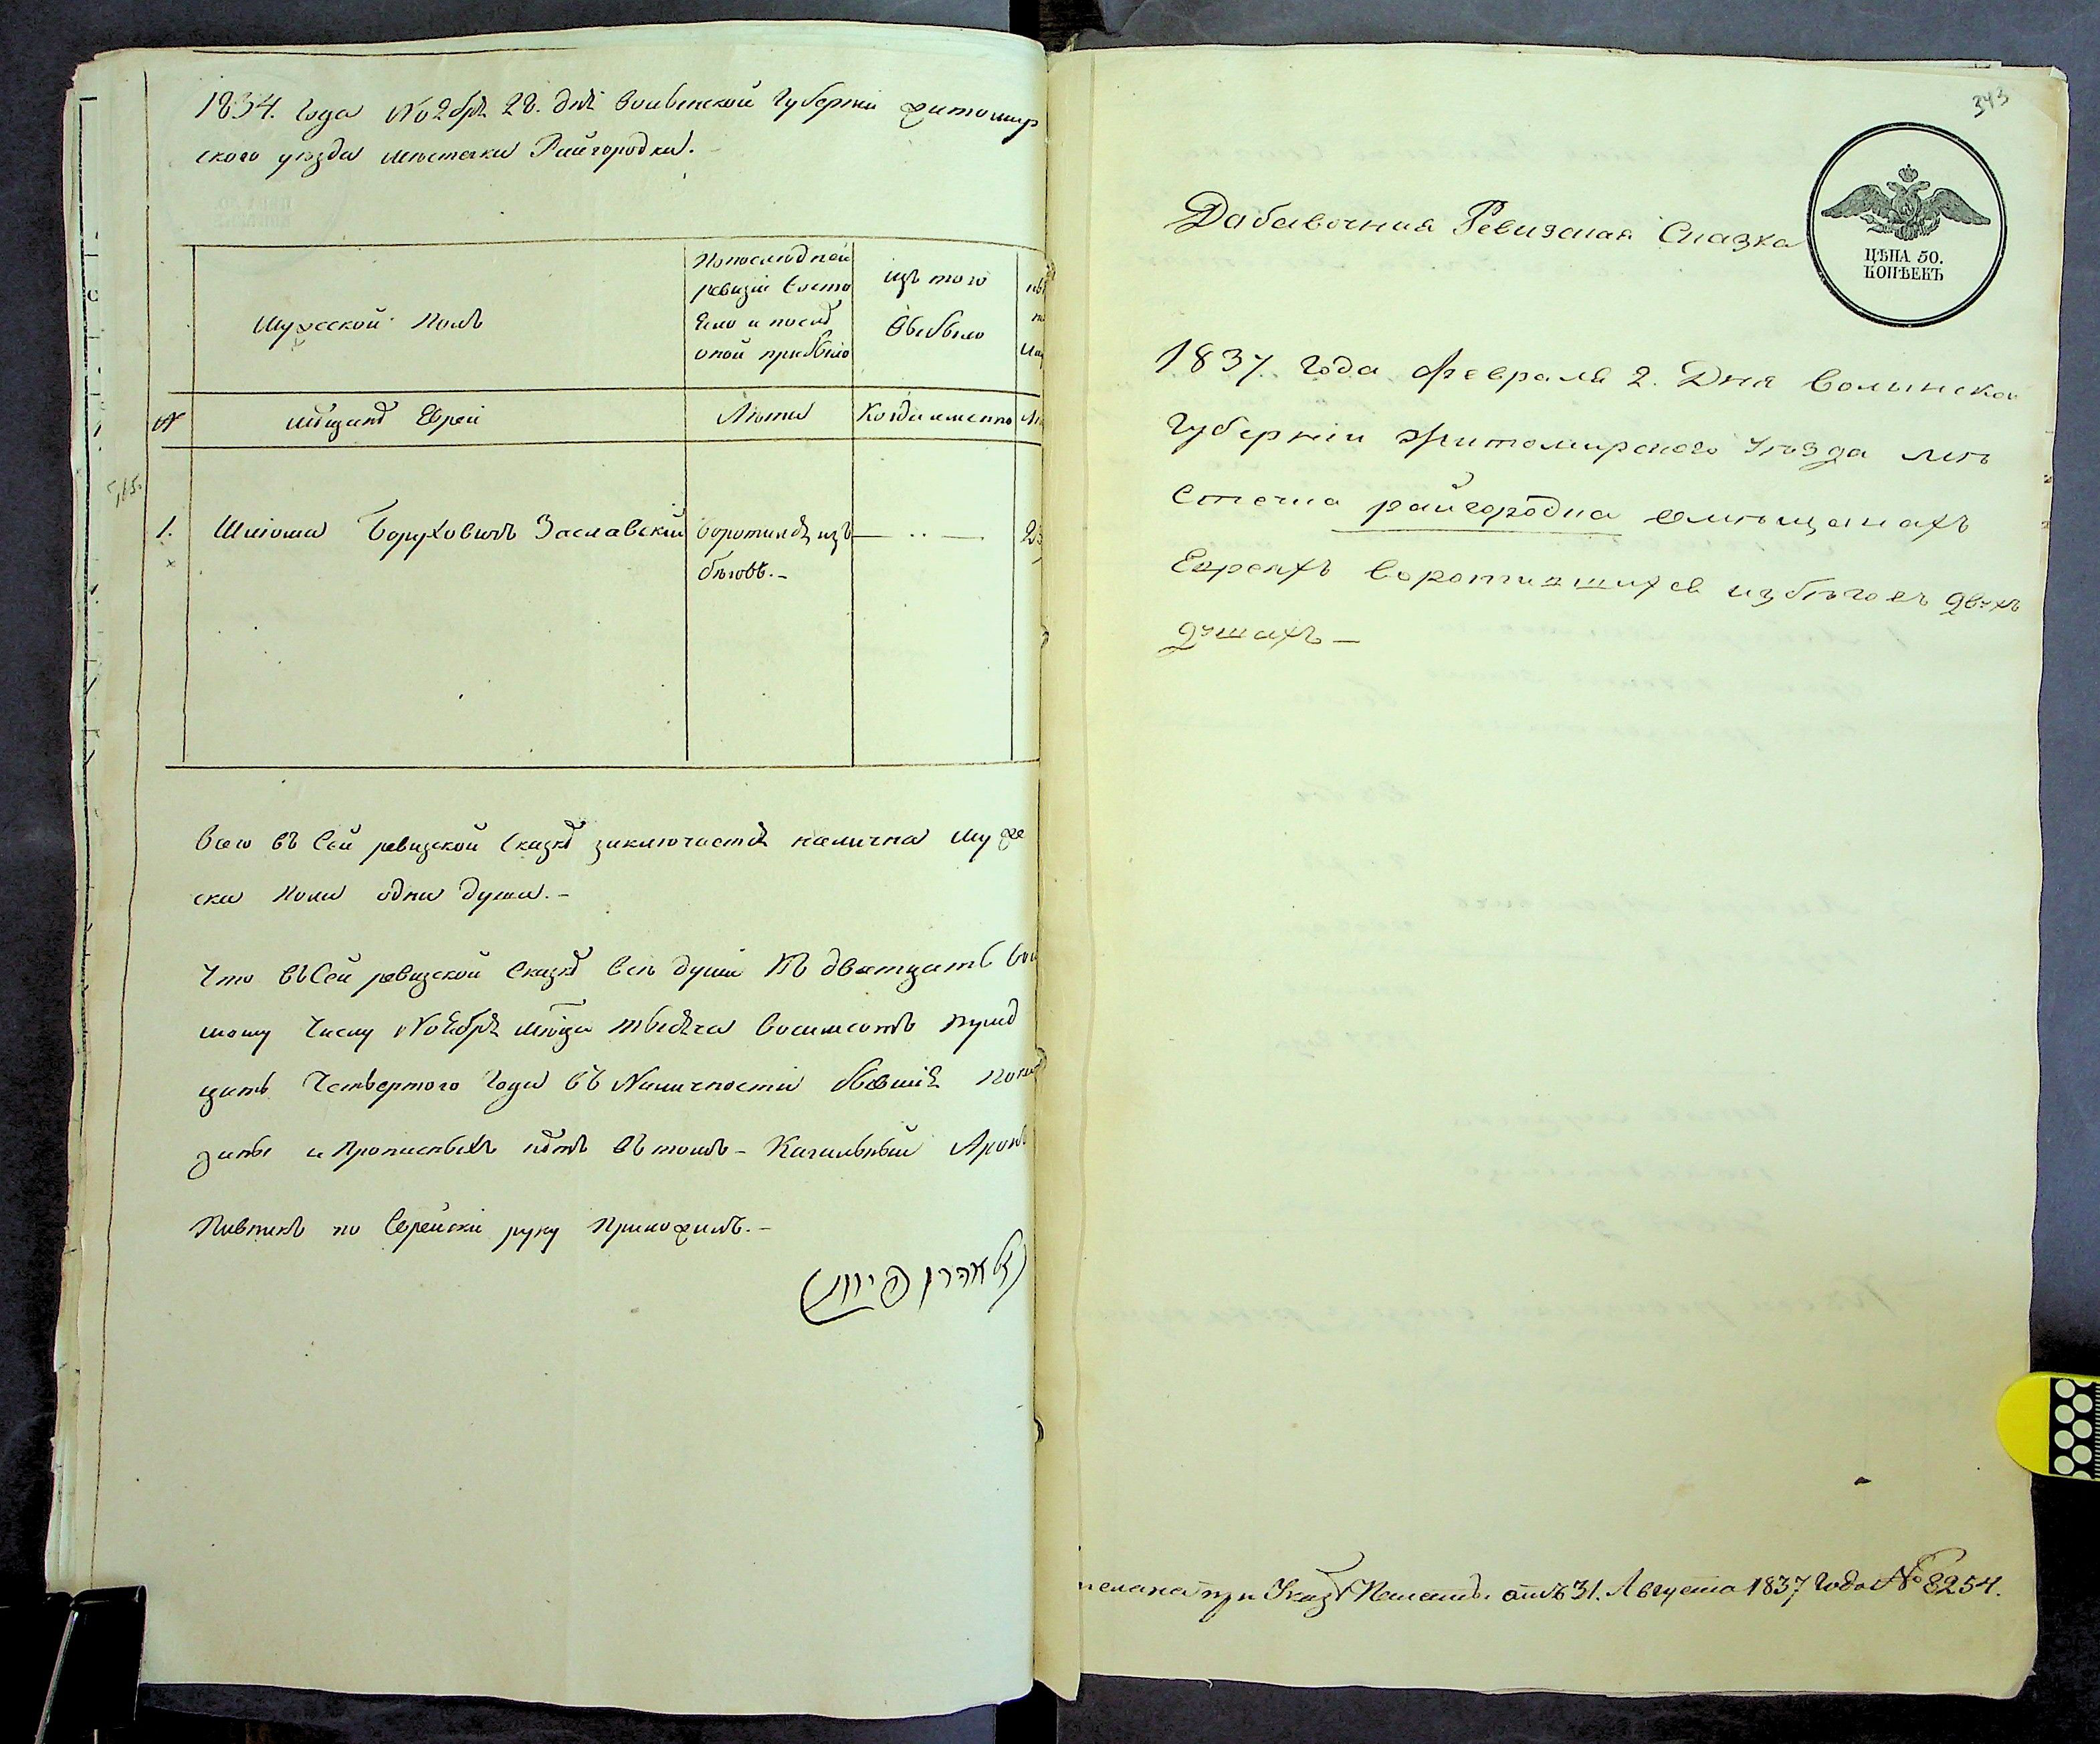 1834. года Ноября 28. дня Волынской губернiи житомир
ского уѣзда мѣстечка Райгородка.
Мужеской полъ
По последней
ревизiи состо
яло и послѣ
оной прибыло
изъ того
выбыло
№
мѣщанѣ Евреи
Лѣта
Когда именно
1.
Шлiома Борухович Заславскiй
воротился изъ
бѣговъ.-
— .. —
Всего въ сей ревизской сказкѣ заключается налична муже
ска пола одна душа.-
Что въ сей ревизской сказкѣ всѣ души къ дватцать вос
мому числу Ноября мѣсяца тысяча восимсотъ трид
цать Четвертого года въ Наличности бывшiя пока
заны и прописныхъ нѣтъ въ томъ - Кагальный Аронъ
Пивтикъ по Еврейски руку приложилъ.-
אהרן
343
Дабавочная Ревизская Сказка
ЦѢНА 50.
КОПѢЕКЪ
1837 года февраля 2. Дня Волынской
Губернiи житомирского Уѣзда мѣ
стечка райгородка омѣщанахъ
Евреяхъ воротившихся избѣговъ двухъ
душахъ —
при Указѣ Палаты отъ 31. Августа 1837 года № 8254.